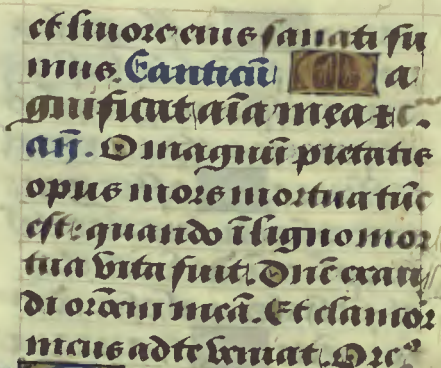 et liuore eius sanati su
mus. Canticū M a
gnificat aīa mea ꝛc
añ. O magnū pietatis
opus mors mortua tūc
est: quando ī ligno mor
tua vita fuit. Dn̄e exau
di or̄oem meā. Et clamor
meus ad te veniat. Ore